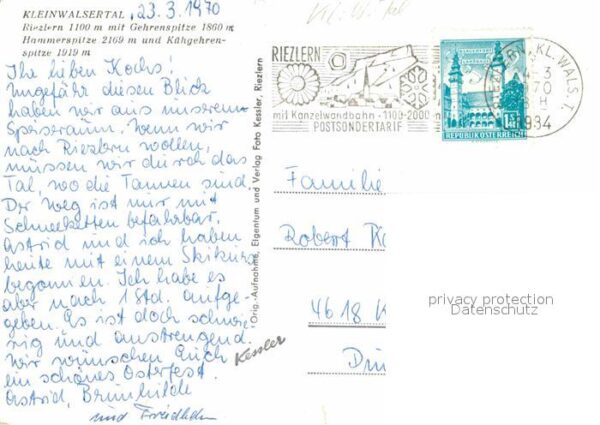 KLEINWALSERTAL 23.3.1970
Riezlern 1100 m mit Gehrenspitze 1860 m
Hammerspitze 2169 m und Kühgehren-
spitze 1919 m
Ihr lieben Kochs!
Ungefähr diesen Blick
haben wir aus unserem
Speiseraum. Wenn wir
nach Riezlern wollen,
müssen wir durch das
Tal, wo die Tannen sind.
Der Weg ist nur mit
Schneeketten befahrbar.
Astrid und ich haben
heute mit einem Skikurs
begonnen. Ich habe es
aber nach 1 Std. aufge-
geben. Es ist doch schwie-
rig und anstrengend.
Wir wünschen Euch
ein schönes Osterfest.
Astrid, Brunhilde
und
Orig.-Aufnahme, Eigentum und Verlag Foto Kessler, Riezlern
Kessler
RIEZLERN
mit Kanzelwandbahn · 1100-2000 m
POSTSONDERTARIF
KL. WALS. T.
70
REPUBLIK ÖSTERREICH
Familie
Robert
4618
privacy protection
Datenschutz